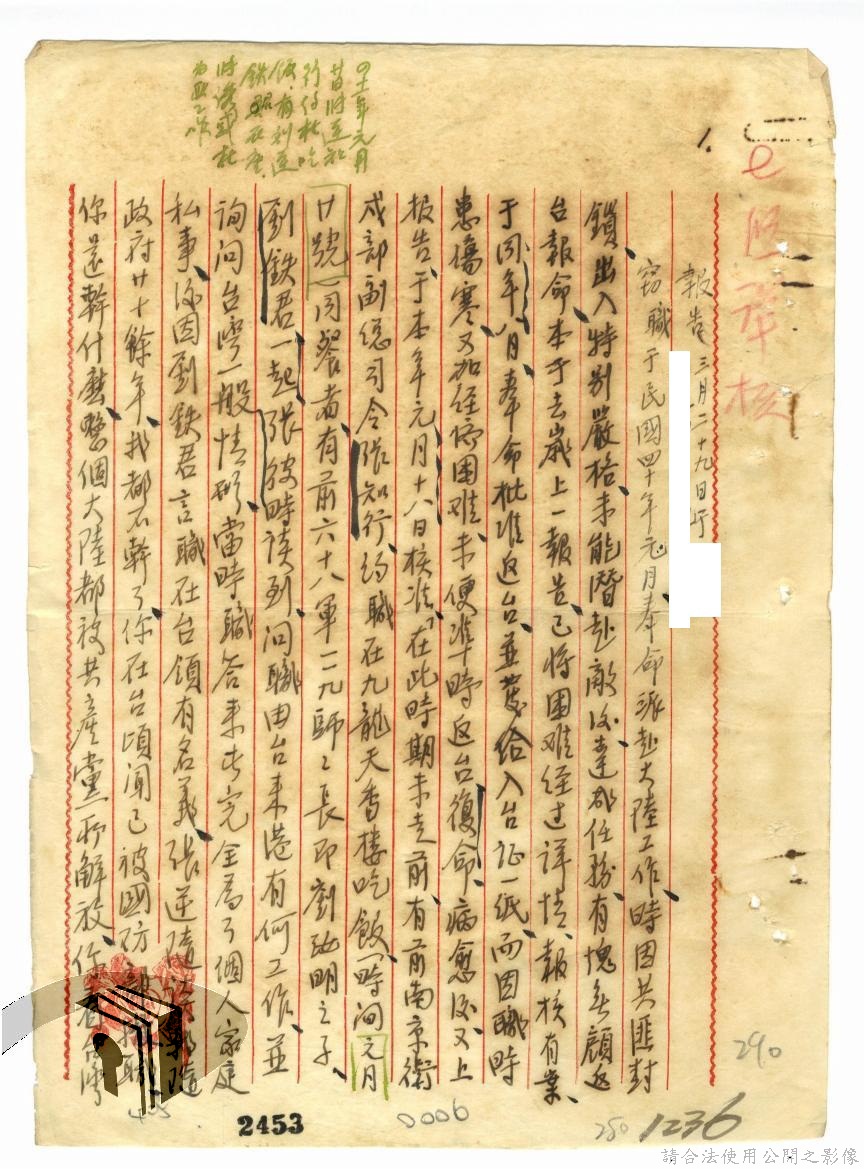 報告 三月二十九日于
竊職于民國四十年元月奉命派赴大陸工作、時因共匪封
鎖、出入特別嚴格、未能潛赴敵後達成任務、有愧無顏返
台報命、本于去歲上一報告、已將困难经过詳情、報核有案、
于同年八月、奉命批准返台、並蒙给入台证一纸、而因職時
患傷寒、又加经济困难、未便準時返台復命、病愈後又上
报告、于本年元月十八日核准、在此時期未走前、有前南京衛
戍部副總司令張知行、约職在九龍天香樓吃飯、時间元月
廿號、同餐者、有前六十八軍一一九師之長即劉
明之子、
劉鉄君一起、張彼時谈到、问職由台来港有何工作、並
询问台湾一般情形、當時職答来此完全為了個人家庭
私事、後因劉鉄君言職在台領有名義、張逆隨
政府廿十餘年、我都不幹了、你在台頃闻已被國防部
你還幹什麽、整個大陸都被共產黨所解放、你看台湾
四十一年元月
1.
290
2453
0006
250
1236
請合法使用公開之影像